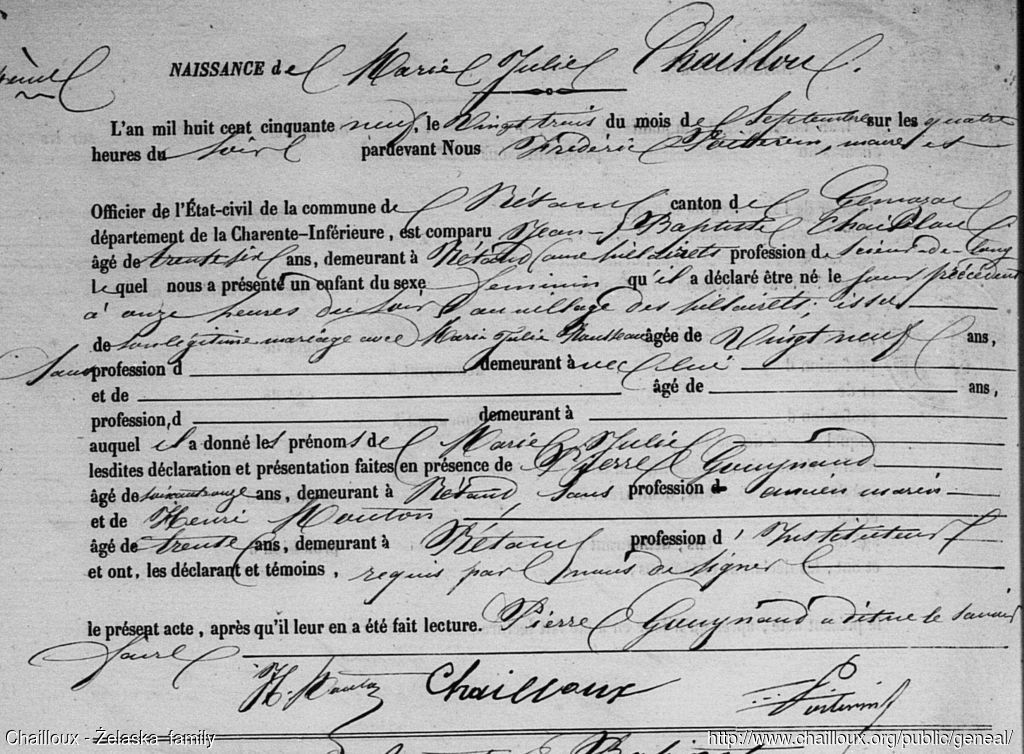 NAISSANCE de Marie Julie Chaillou.
L'an mil huit cent cinquante neuf, le Vingt trois du mois de Septembre sur les quatre
heures du Soir pardevant Nous Frédéric Poitevin, maire et
Officier de l'État-civil de la commune de Rétaud canton de Gemozac
département de la Charente-Inférieure, est comparu Jean-Baptiste Chaillou
âgé de trente six ans, demeurant à Rétaud profession de Scieur de long
lequel nous a présenté un enfant du sexe féminin qu'il a déclaré être né le jour précédent
à onze heures du Soir au village des ; issu
de son légitime mariage avec Marie Julie Rousseau âgée de Vingt neuf ans,
Sans profession d demeurant avec lui
et de âgé de ans,
profession, d demeurant à
auquel il a donné les prénoms de Marie Julie
lesdites déclaration et présentation faites en présence de Pierre Gouynaud
âgé de soixante onze ans, demeurant à Rétaud, sans profession d ancien marin
et de Henri Mouton
âgé de trente ans, demeurant à Rétaud profession d'Instituteur
et ont, les déclarant et témoins, requis par nous de signer
le présent acte, après qu'il leur en a été fait lecture. Pierre Gouynaud a dit ne le savoir
faire
H. Mouton Chailloux Poitevin
Chailloux - Żelaska family http://www.chailloux.org/public/geneal/